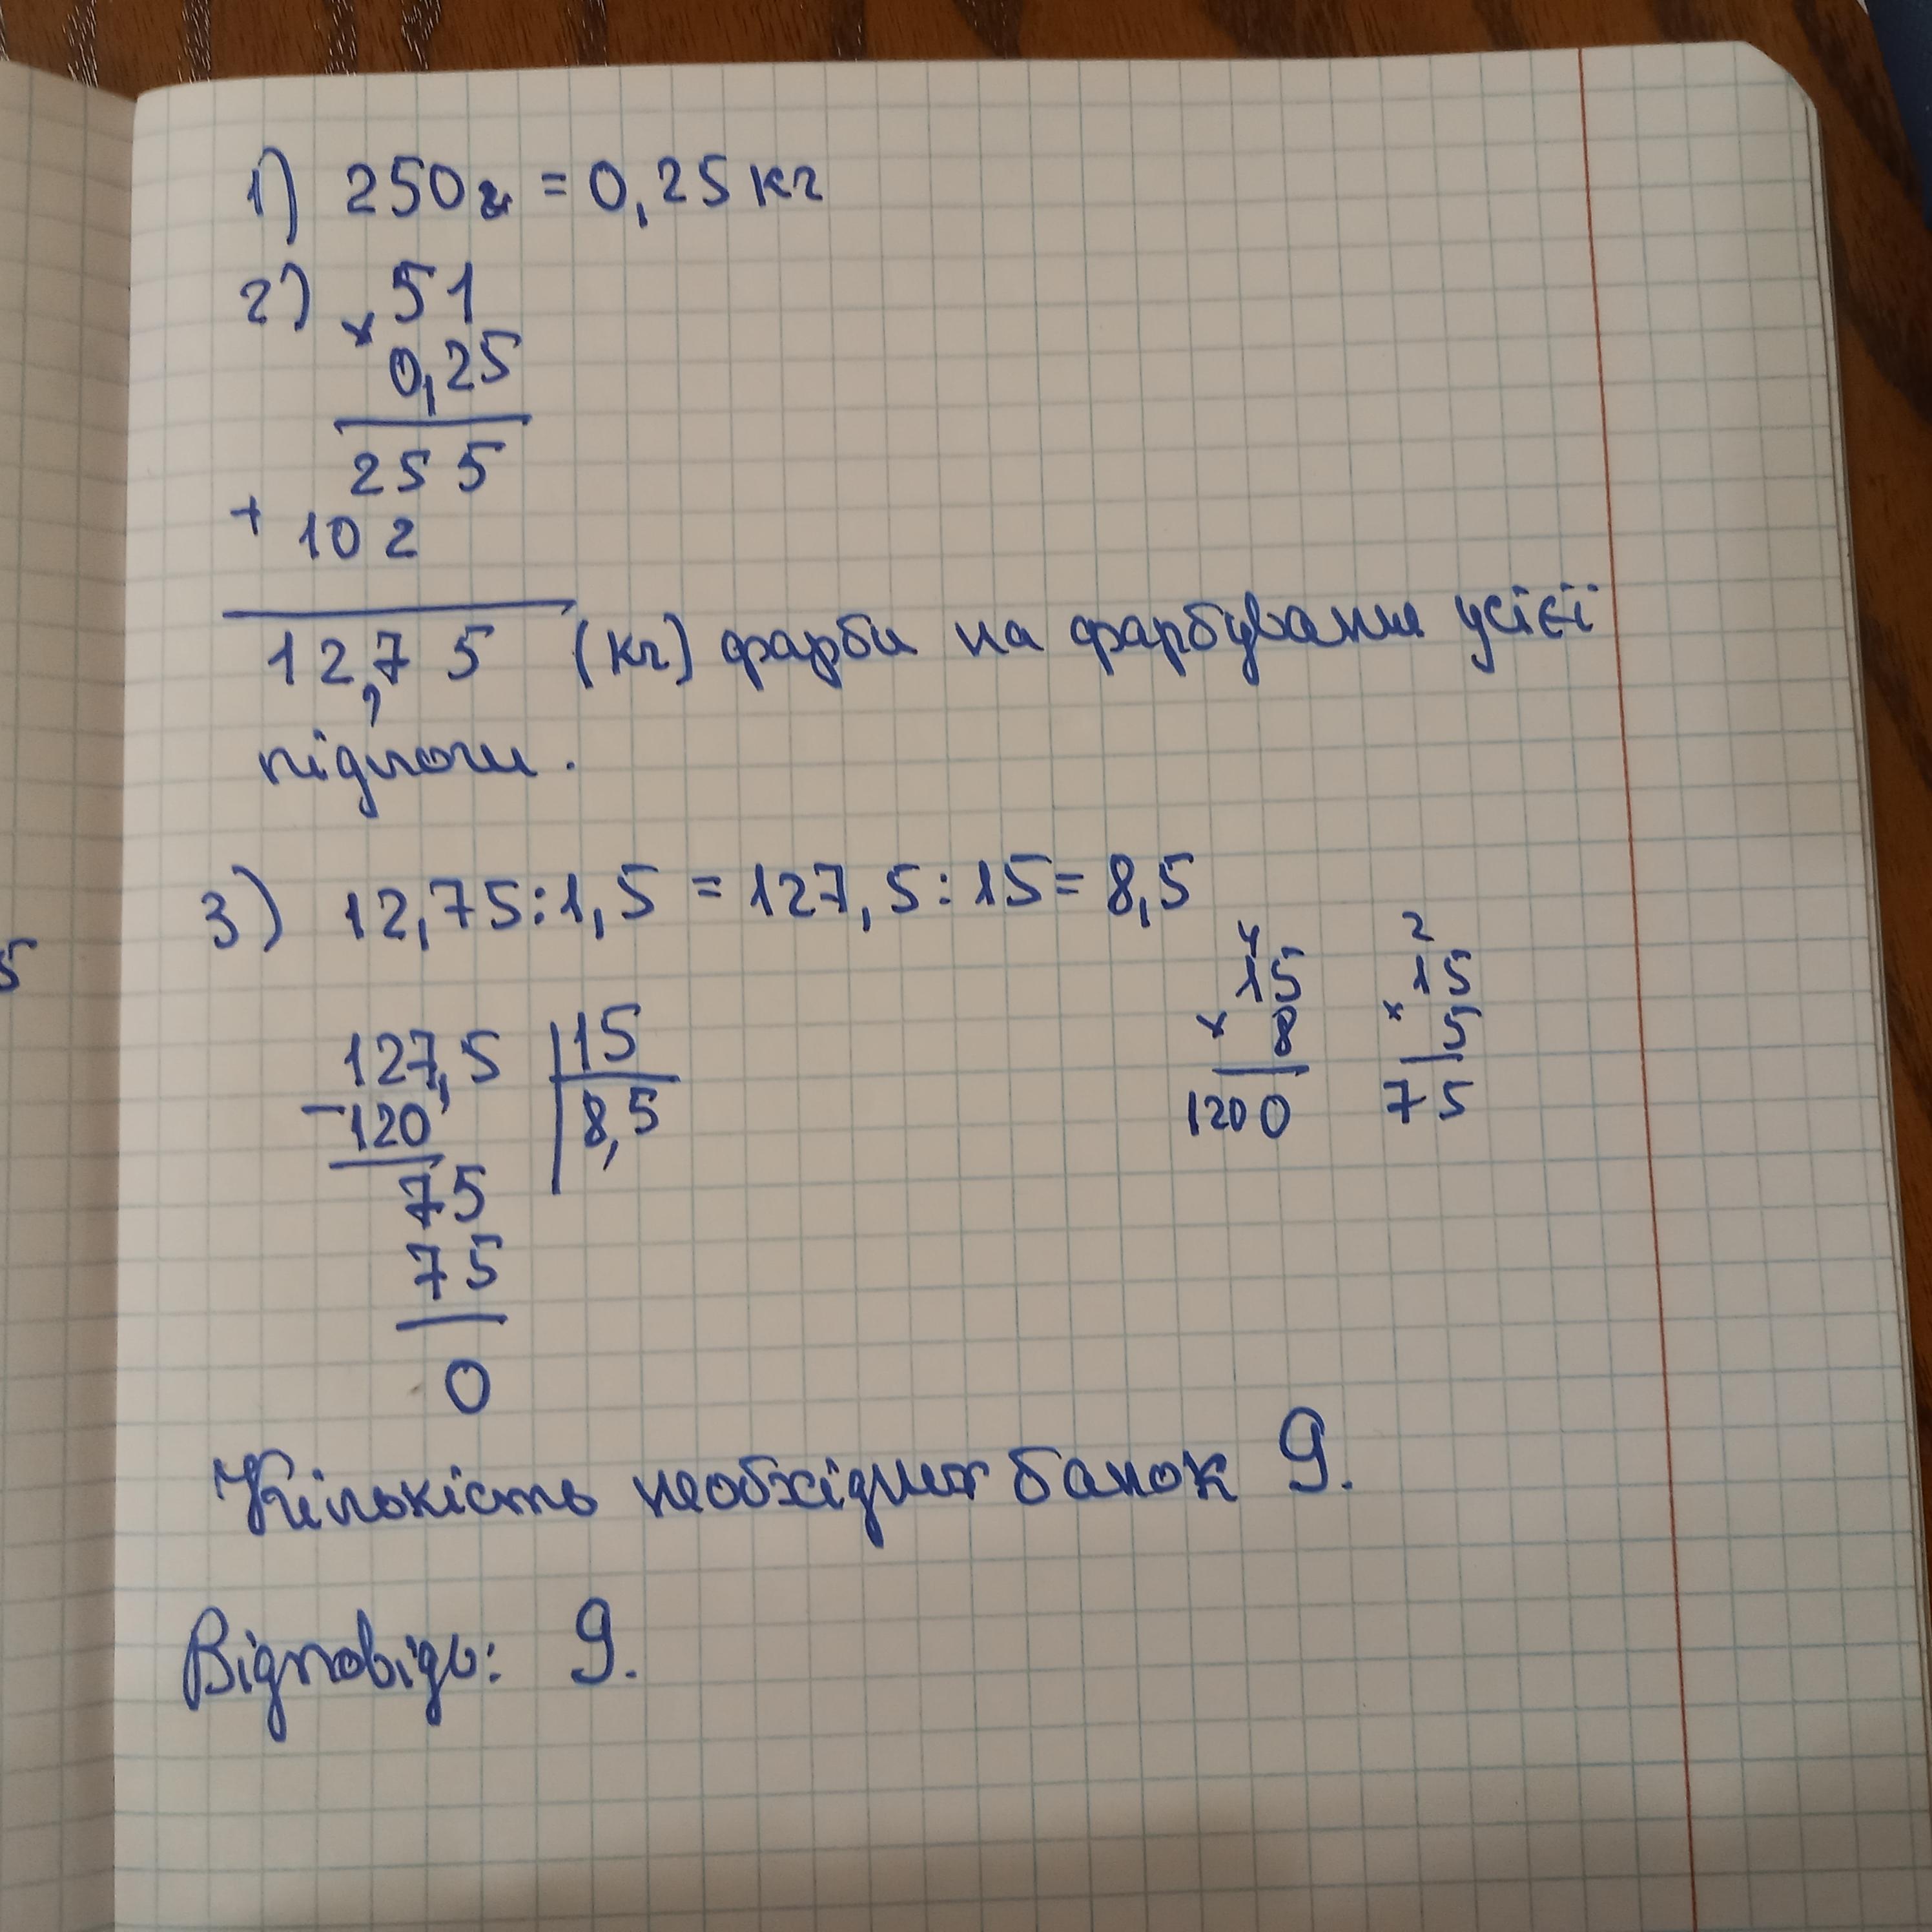 1) 250г = 0,25 кг
2) × 51
0,25
255
+ 102
12,75 (кг) фарби на фарбування усієї
підлоги.
3) 12,75:1,5 = 127,5:15= 8,5
127,5 15
-120 8,5
75
75
0
4
15
× 8
1200
2
15
× 5
75
Кількість необхідних банок 9.
Відповідь: 9.
5